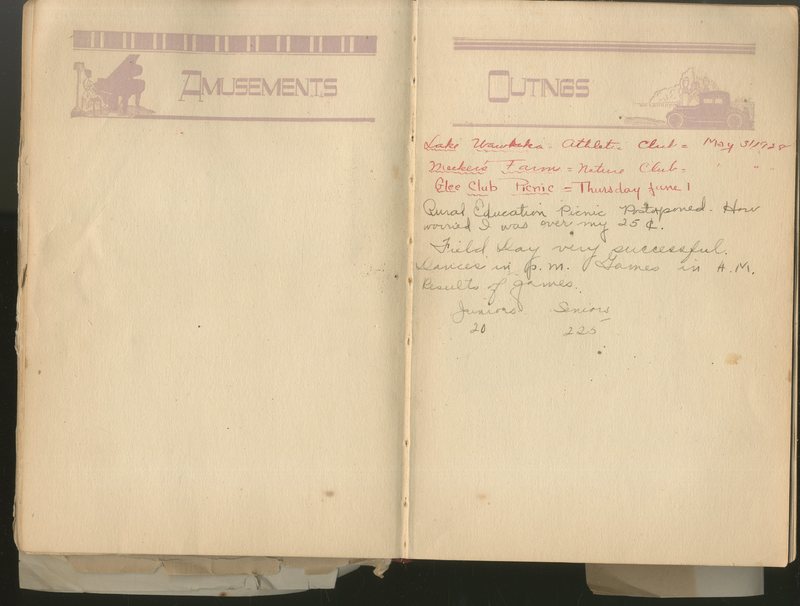 AMUSEMENTS
OUTINGS
Lake Wawkeka - Athletic Club = May 31 1928
Meeker's Farm = Nature Club = " " "
Glee Club Picnic = Thursday June 1
Rural Education Picnic Postponed. How
worried I was over my 25 ¢.
Field Day very successful.
Dances in p.m. Games in A.M.
Results of games.
Juniors Seniors
20 225